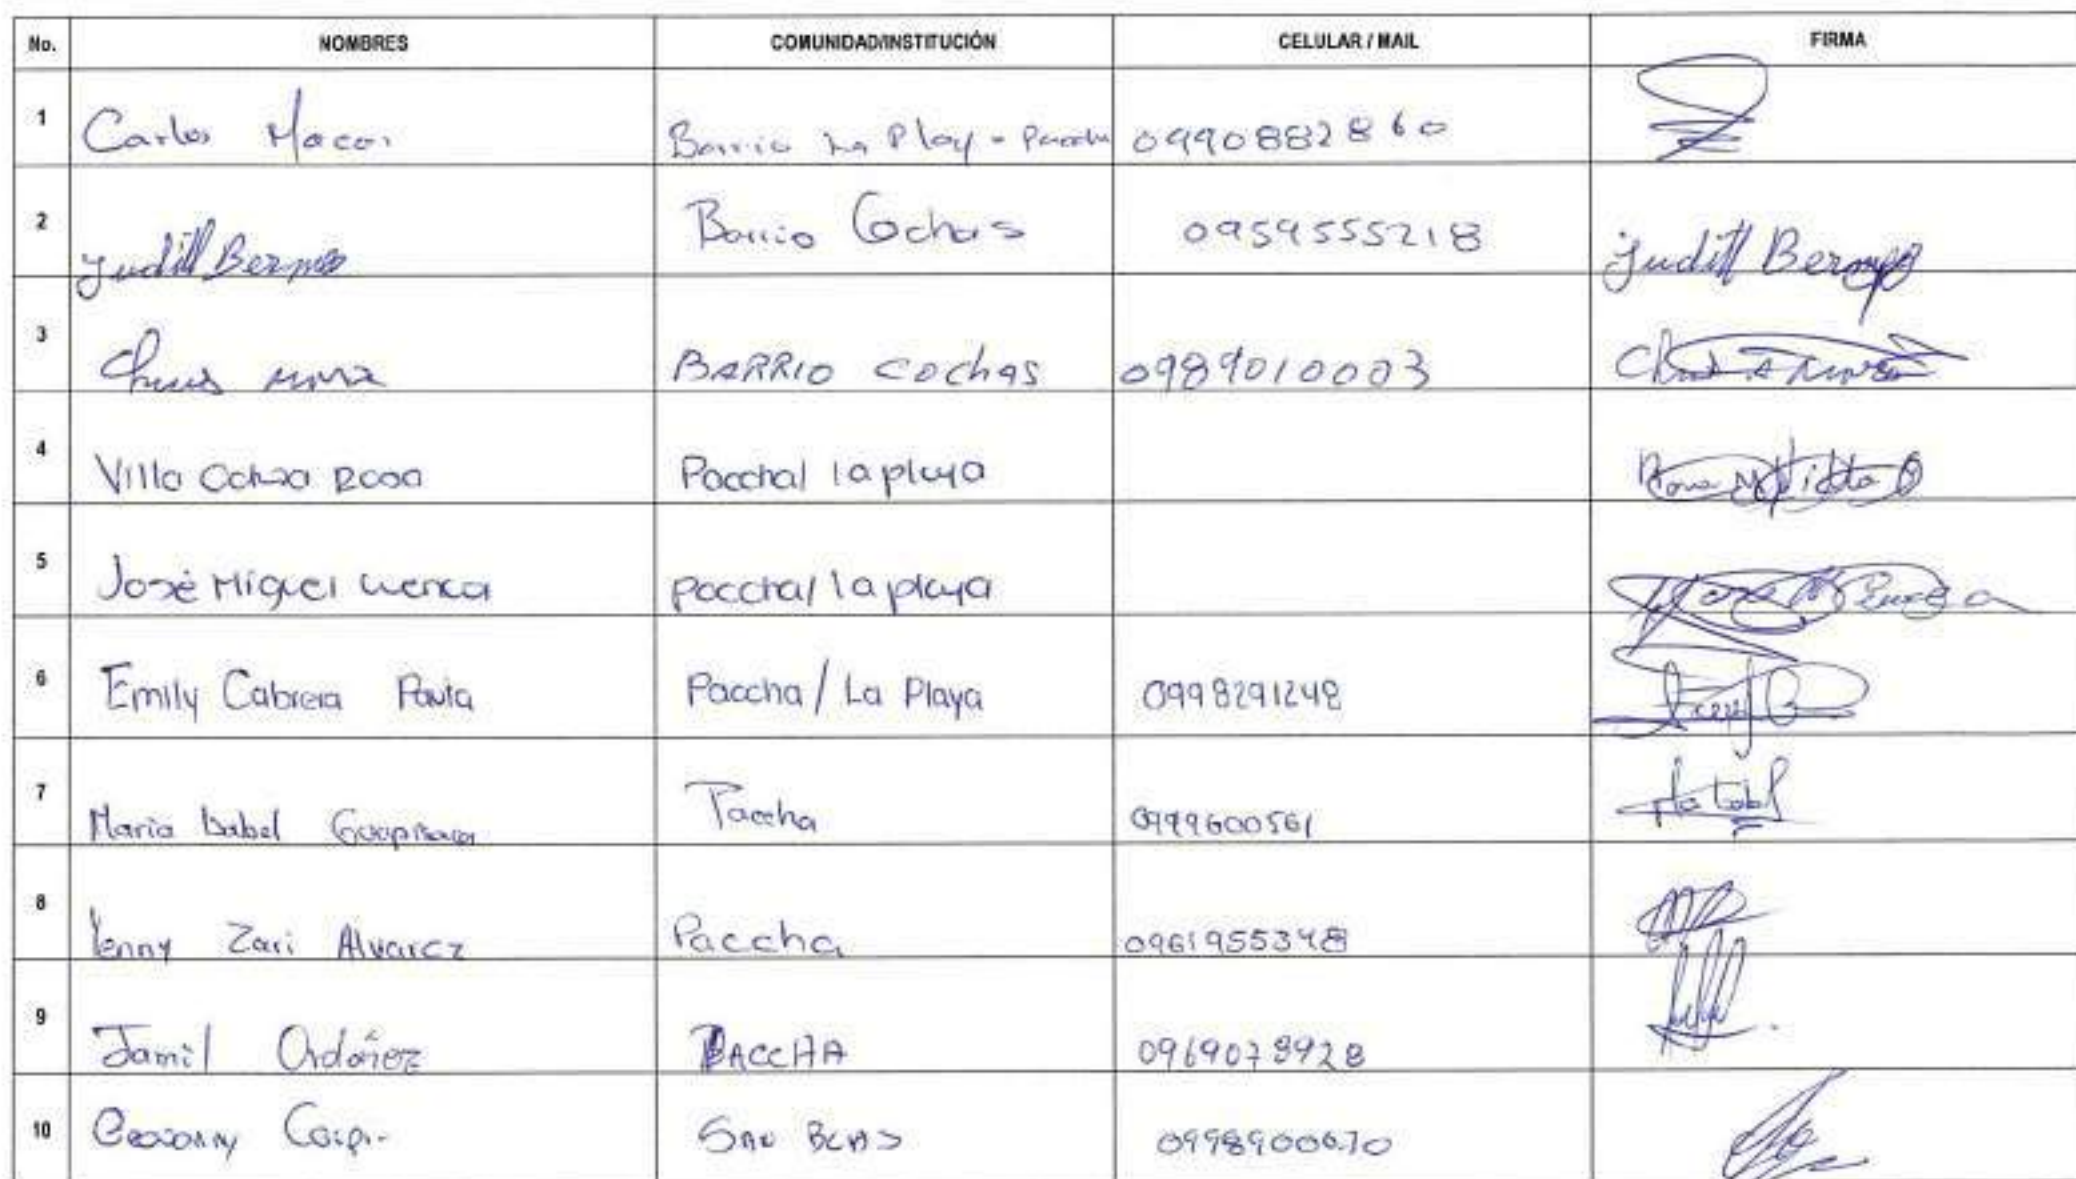 No. NOMBRES COMUNIDAD/INSTITUCIÓN CELULAR / MAIL FIRMA
1 Carlos Barrio La Play - Paccha 0990882860
2 Judith Bermeo Barrio Cochas 0959555218 Judith Bermeo
3 BARRIO Cochas 0989010003
4 Villa Ochoa Rosa Paccha/ la playa
5 José Miguel Cuenca paccha/ la playa
6 Emily Cabrera Pauta Paccha / La Playa 0998291248
7 Maria Isabel Guapisaca Paccha 0999600561
8 Yenny Zari Alvarez Paccha 0961955348
9 Jamil Ordóñez PACCHA 0969078928
10 Geovanny SAN BLAS 0998900670